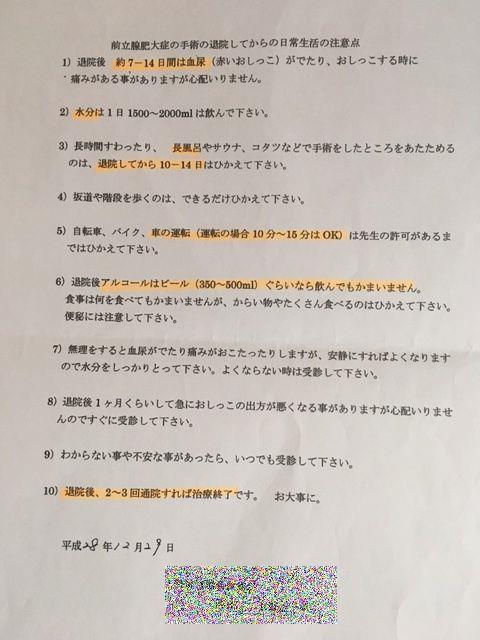 前立腺肥大症の手術の退院してからの日常生活の注意点
1）退院後　約7－14日間は血尿（赤いおしっこ）がでたり、おしっこする時に
痛みがある事がありますが心配いりません。
2）水分は1日1500～2000mlは飲んで下さい。
3）長時間すわったり、　長風呂やサウナ、コタツなどで手術をしたところをあたためる
のは、退院してから10－14日はひかえて下さい。
4）坂道や階段を歩くのは、できるだけひかえて下さい。
5）自転車、バイク、車の運転（運転の場合10分～15分はOK）は先生の許可があるま
ではひかえて下さい。
6）退院後アルコールはビール（350～500ml）ぐらいなら飲んでもかまいません。
食事は何を食べてもかまいませんが、からい物やたくさん食べるのはひかえて下さい。
便秘には注意して下さい。
7）無理をすると血尿がでたり痛みがおこたったりしますが、安静にすればよくなります
ので水分をしっかりとって下さい。よくならない時は受診して下さい。
8）退院後1ヶ月くらいして急におしっこの出方が悪くなる事がありますが心配いりませ
んのですぐに受診して下さい。
9）わからない事や不安な事があったら、いつでも受診して下さい。
10）退院後、2～3回通院すれば治療終了です。　お大事に。
平成28年12月29日